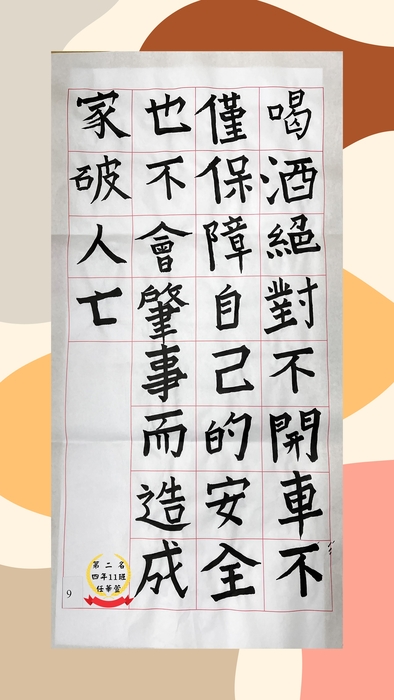 喝酒絕對不開車不
僅保障自己的安全
也不會肇事而造成
家破人亡
第二名
四年11班
任華萱
9